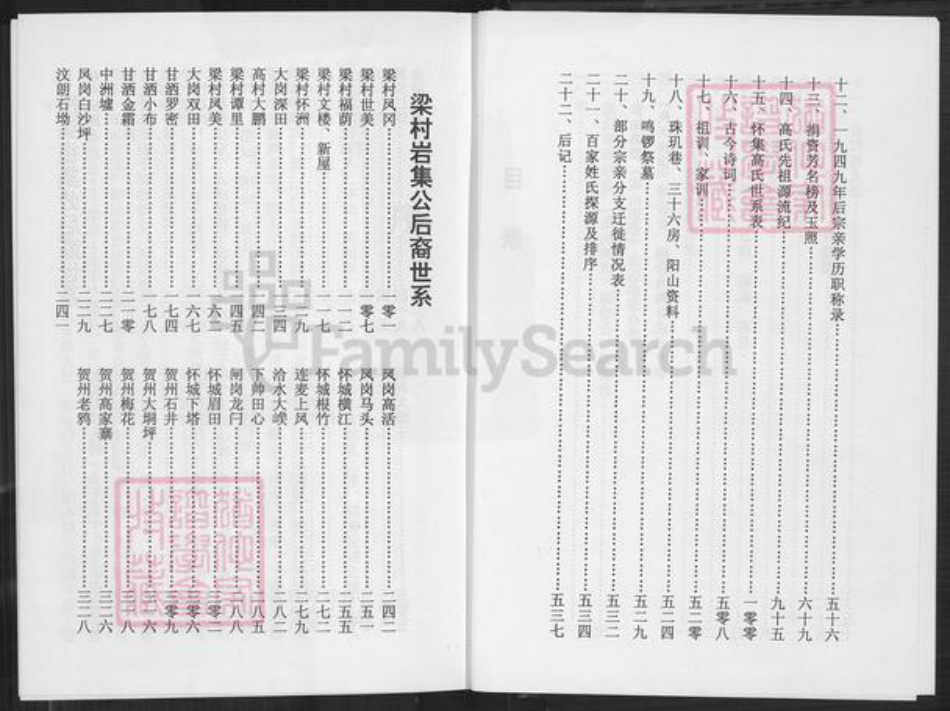 十二、一九四九年后宗亲学历职称录……五十六
十三、捐资芳名榜及玉照……六十九
十四、高氏先祖源流纪……九十五
十五、怀集高氏世系表……一零零
十六、古今诗词……五零八
十七、祖训、家训……五二零
十八、珠玑巷、三十六房、阳山资料……五二四
十九、鸣锣祭墓……五二九
二十、部分宗亲分支迁徙情况表……五三二
二十一、百家姓氏探源及排序……五三四
二十二、后记……五三七
梁村岩集公后裔世系
梁村凤冈……一零一
梁村世美……一零七
梁村福荫……一一二
梁村文楼、新屋……一一七
梁村怀洲……一二九
大岗深田……一三四
高村大鹏……一四二
梁村谭里……一四五
梁村凤美……一六二
大岗双田……一六七
甘洒罗密……一七四
甘洒小布……一七八
甘洒金霜……二一零
中洲墟……二二七
凤岗白沙坪……二二九
汶朗石坳……二四一
凤岗高活……二四二
凤岗马头……二五一
怀城横江……二五五
怀城根竹……二七二
连麦上凤……二七九
洽水大㙟……二八二
下帅田心……二八五
闸岗龙闩……二八八
怀城眉田……三零二
怀城下塔……三零六
贺州石井……三零九
贺州大垌坪
贺州梅花
贺州高家寨……三二六
贺州老鸦……三二八
FamilySearch